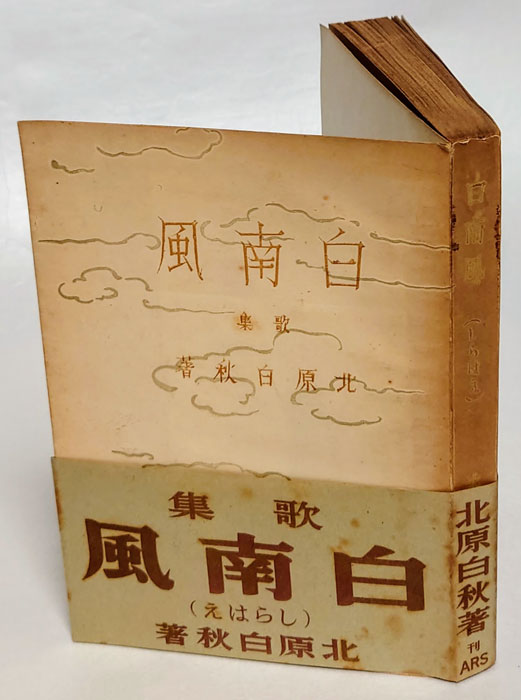 白南風
歌集
北原白秋著
歌集
白南風
(しらはえ)
北原白秋著
白南風
(しらはえ)
北原白秋著
刊
ARS